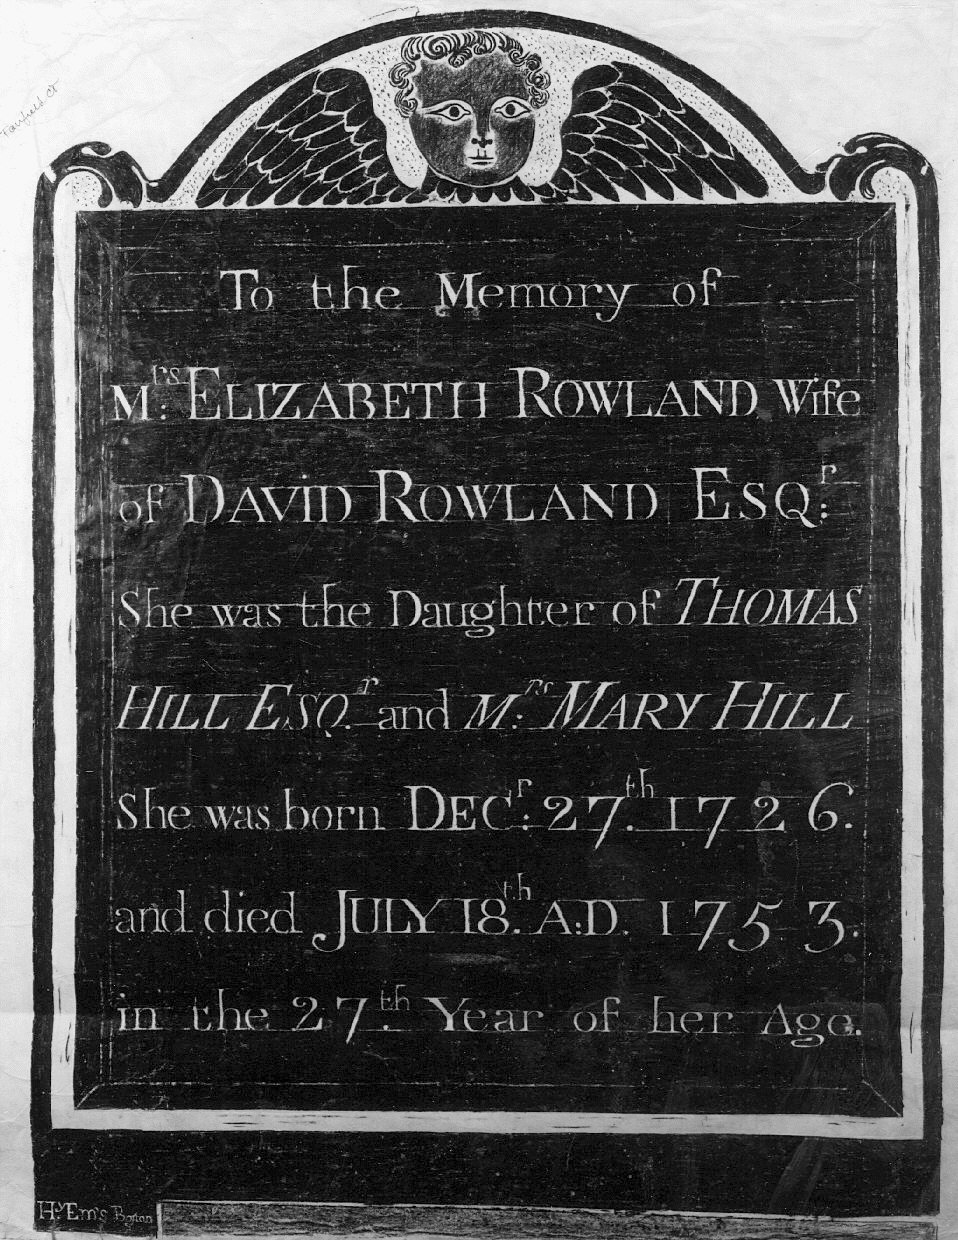 Fairfield Ct
To the Memory of
Mrs: ELIZABETH ROWLAND Wife
of DAVID ROWLAND ESQr:
She was the Daughter of THOMAS
HILL ESQr. and Mrs: MARY HILL
She was born DECr: 27th. 1726.
and died JULY 18th. A:D. 1753.
in the 27th. Year of her Age.
Hy Em's Boston